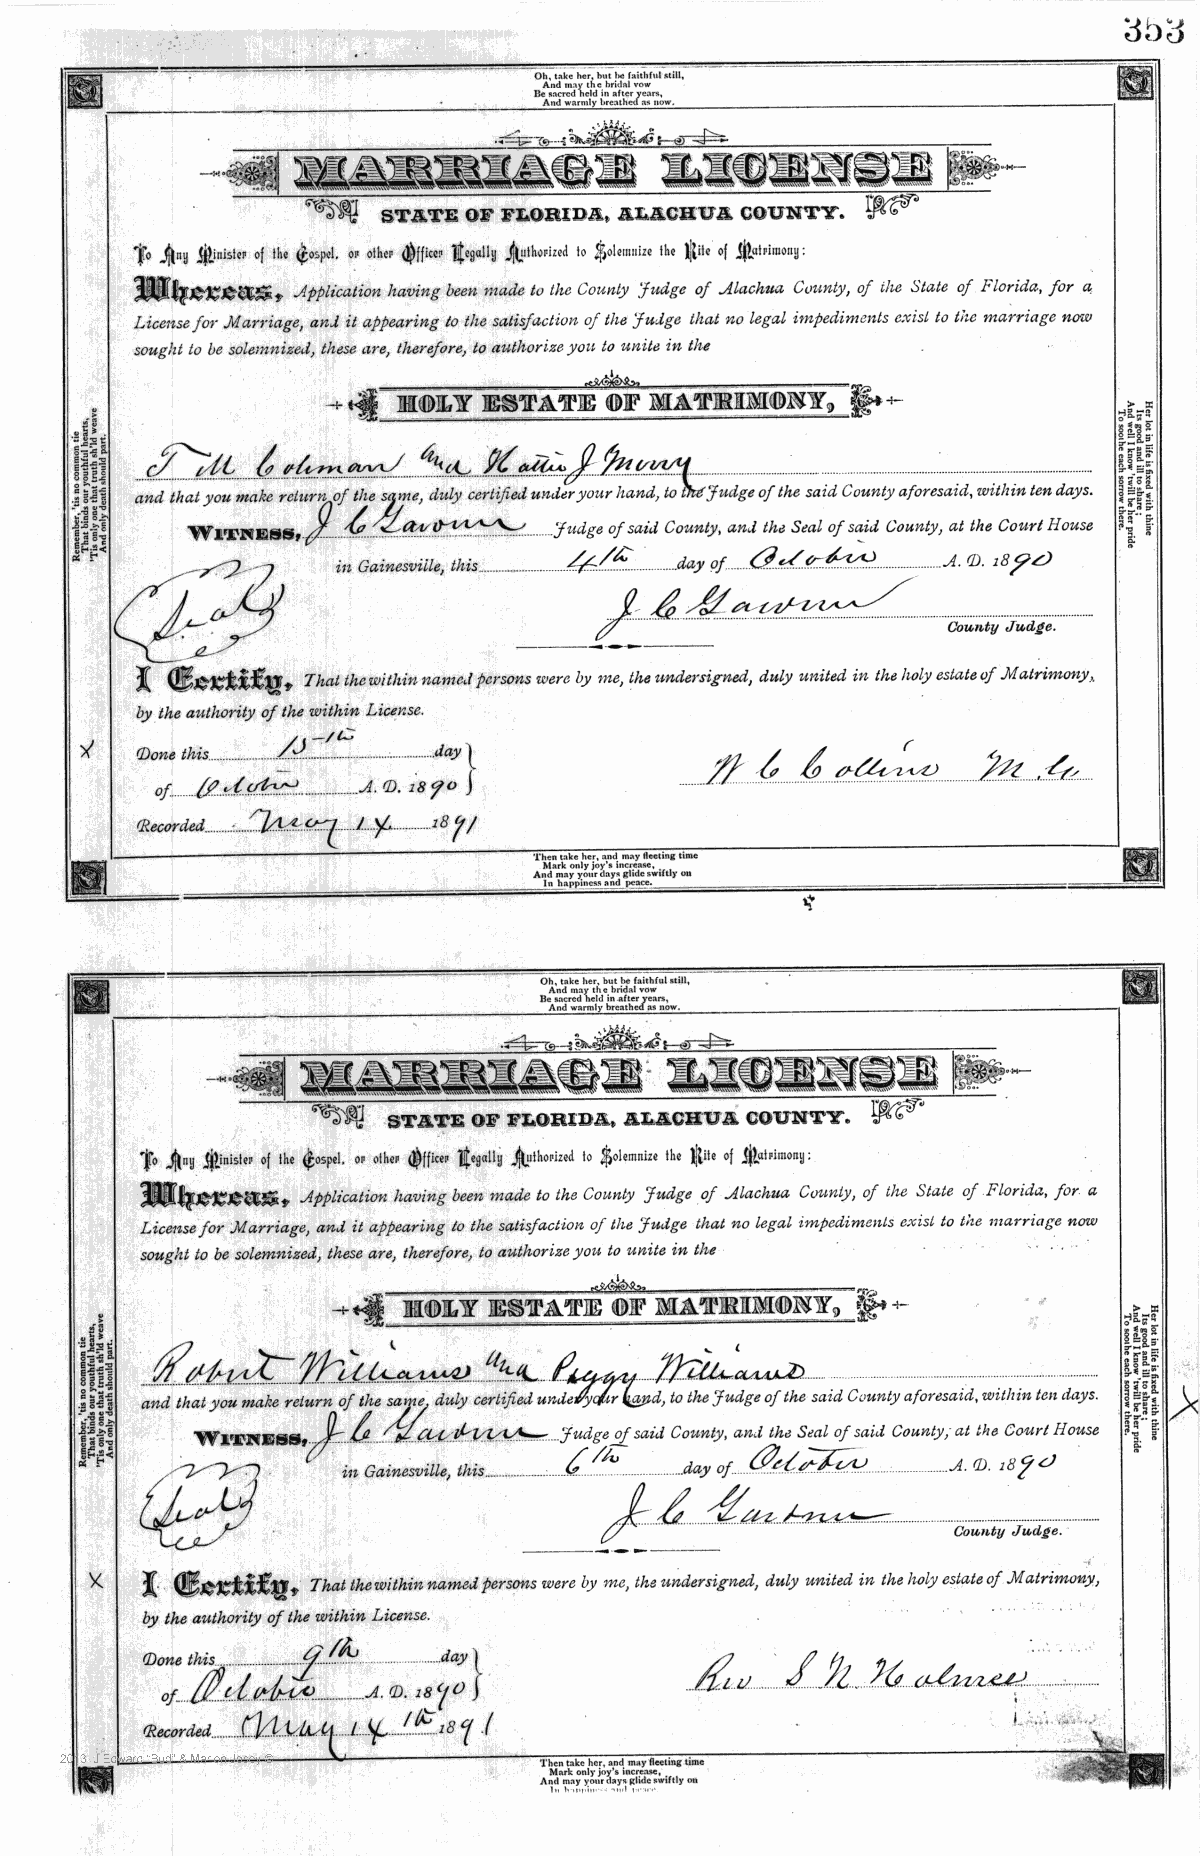 353
Oh, take her, but be faithful still,
And may the bridal vow
Be sacred held in after years,
And warmly breathed as now.
MARRIAGE LICENSE
STATE OF FLORIDA, ALACHUA COUNTY.
To Any Minister of the Gospel, or other Officer Legally Authorized to Solemnize the Rite of Matrimony:
Whereas, Application having been made to the County Judge of Alachua County, of the State of Florida, for a
License for Marriage, and it appearing to the satisfaction of the Judge that no legal impediments exist to the marriage now
sought to be solemnized, these are, therefore, to authorize you to unite in the
HOLY ESTATE OF MATRIMONY,
T M Coleman and Hattie J
and that you make return of the same, duly certified under your hand, to the Judge of the said County aforesaid, within ten days.
WITNESS, J C Gardner Judge of said County, and the Seal of said County, at the Court House
in Gainesville, this 4th day of October A. D. 1890
Seal
J C Gardner
County Judge.
I Certify, That the within named persons were by me, the undersigned, duly united in the holy estate of Matrimony,
by the authority of the within License.
X Done this 15th day
of October A. D. 1890
W C Collins M. G.
Recorded May 14 1891
Then take her, and may fleeting time
Mark only joy's increase,
And may your days glide swiftly on
In happiness and peace.
Remember, 'tis no common tie
That binds our youthful hearts,
'Tis only one that truth sh'ld weave
And only death should part.
Her lot in life is fixed with thine
Its good and ill to share;
And well I know 'twill be her pride
To soothe each sorrow there.
Oh, take her, but be faithful still,
And may the bridal vow
Be sacred held in after years,
And warmly breathed as now.
MARRIAGE LICENSE
STATE OF FLORIDA, ALACHUA COUNTY.
To Any Minister of the Gospel, or other Officer Legally Authorized to Solemnize the Rite of Matrimony:
Whereas, Application having been made to the County Judge of Alachua County, of the State of Florida, for a
License for Marriage, and it appearing to the satisfaction of the Judge that no legal impediments exist to the marriage now
sought to be solemnized, these are, therefore, to authorize you to unite in the
HOLY ESTATE OF MATRIMONY,
Robert Williams and Peggy Williams
and that you make return of the same, duly certified under your hand, to the Judge of the said County aforesaid, within ten days.
WITNESS, J C Gardner Judge of said County, and the Seal of said County, at the Court House
X
in Gainesville, this 6th day of October A. D. 1890
Seal
J C Gardner
County Judge.
X I Certify, That the within named persons were by me, the undersigned, duly united in the holy estate of Matrimony,
by the authority of the within License.
Done this 9th day
of October A. D. 1890
Rev S N Holmes
Recorded May 14th 1891
Then take her, and may fleeting time
Mark only joy's increase,
And may your days glide swiftly on
In happiness and peace
Remember, 'tis no common tie
That binds our youthful hearts,
'Tis only one that truth sh'ld weave
And only death should part.
Her lot in life is fixed with thine
Its good and ill to share;
And well I know 'twill be her pride
To soothe each sorrow there.
J Edward "Bud" &